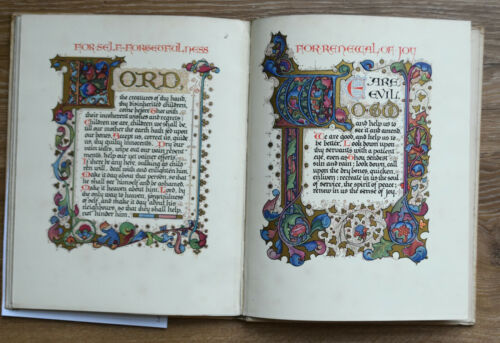 FOR SELF-FORGETFULNESS
LORD,
the creatures of thy hand,
thy disinherited children,
come before Thee with
their incoherent wishes and regrets:
Children we are, children we shall be
till our mother the earth hath fed upon
our bones. Accept us, correct us, guide
us, thy guilty innocents. Dry our
vain tears, wipe out our vain resent-
ments, help our yet vainer efforts.
If there be any here, sulking as children
will, deal with and enlighten him.
Make it day about that person, so that
he shall see himself and be ashamed.
Make it heaven about him, Lord, by
the only way to heaven, forgetfulness
of self, and make it day about his
neighbours, so that they shall help,
not hinder him.
FOR RENEWAL OF JOY
WE ARE
EVIL
O GOD
and help us to
see it and amend.
We are good, and help us to
be better. Look down upon
thy servants with a patient
eye, even as Thou sendest
sun and rain; look down, call
upon the dry bones, quicken,
enliven; recreate in us the soul
of service, the spirit of peace;
renew in us the sense of joy.